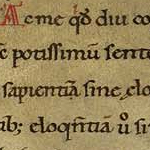 Ac me qđ diu co
e potissimū sente
sapientiā sine elo
ib; eloqntiā u͛o sin